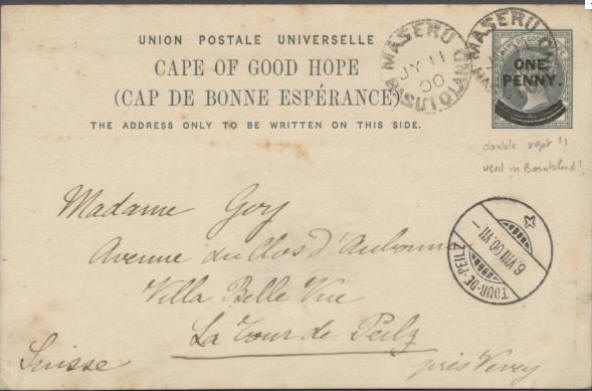 UNION POSTALE UNIVERSELLE
CAPE OF GOOD HOPE
(CAP DE BONNE ESPÉRANCE)
THE ADDRESS ONLY TO BE WRITTEN ON THIS SIDE.
MASERU
JY 11
00
BASUTOLAND
MASERU
ONE
PENNY.
double
used in Basutoland!
Madame Goy
Avenue du Clos d'Aubonne
Villa Belle Vue
La Tour de Peilz
Suisse
près Vevey
TOUR-DE-PEILZ
6.VIII.00.VII-